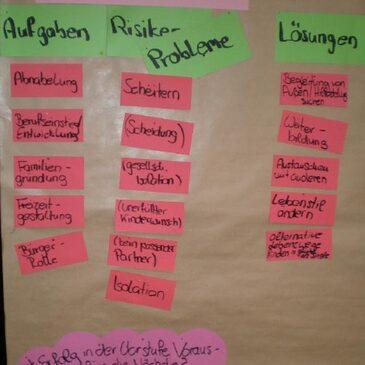 Aufgaben
Risike-
Probleme
Lösungen
Abnabelung
Berufseinstieg/
Entwicklung
Familien-
gründung
Freizeit-
gestaltung
Bürger-
Rolle
Scheitern
(Scheidung)
(gesellsch.
Isolation)
(unerfüllter
Kinderwunsch)
(kein passender
Partner)
Isolation
Begleitung von
Außen/
suchen
Weiter-
bildung
Austauschen
mit anderen
Lebensstil
ändern
alternative
Lebenswege
finden
Erfolg in der Vorstufe Voraus-
die Nächste?